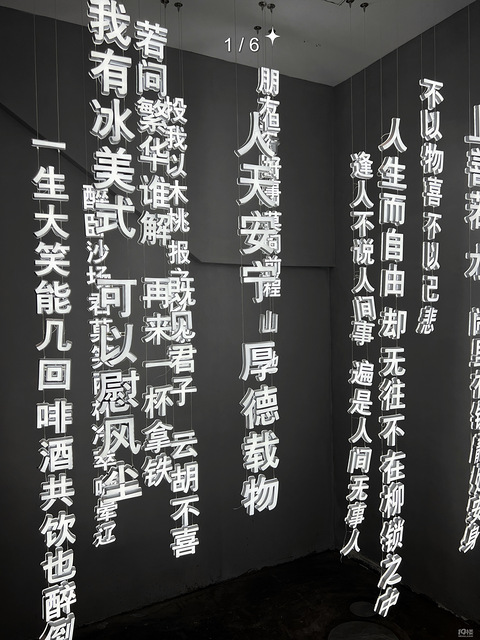 1/6
一生大笑能几回 啡酒共饮也醉倒
我有冰美式 可以慰风尘
醉卧沙场君莫笑
若问繁华谁解 再来一杯拿铁
投我以木桃 报之
既见君子 云胡不喜
朋友但行好事莫问前程
人天安宁
山
厚德载物
逢人不说人间事 遍是人间无事人
人生而自由 却无往不在枷锁之中
不以物喜 不以己悲
上善若水